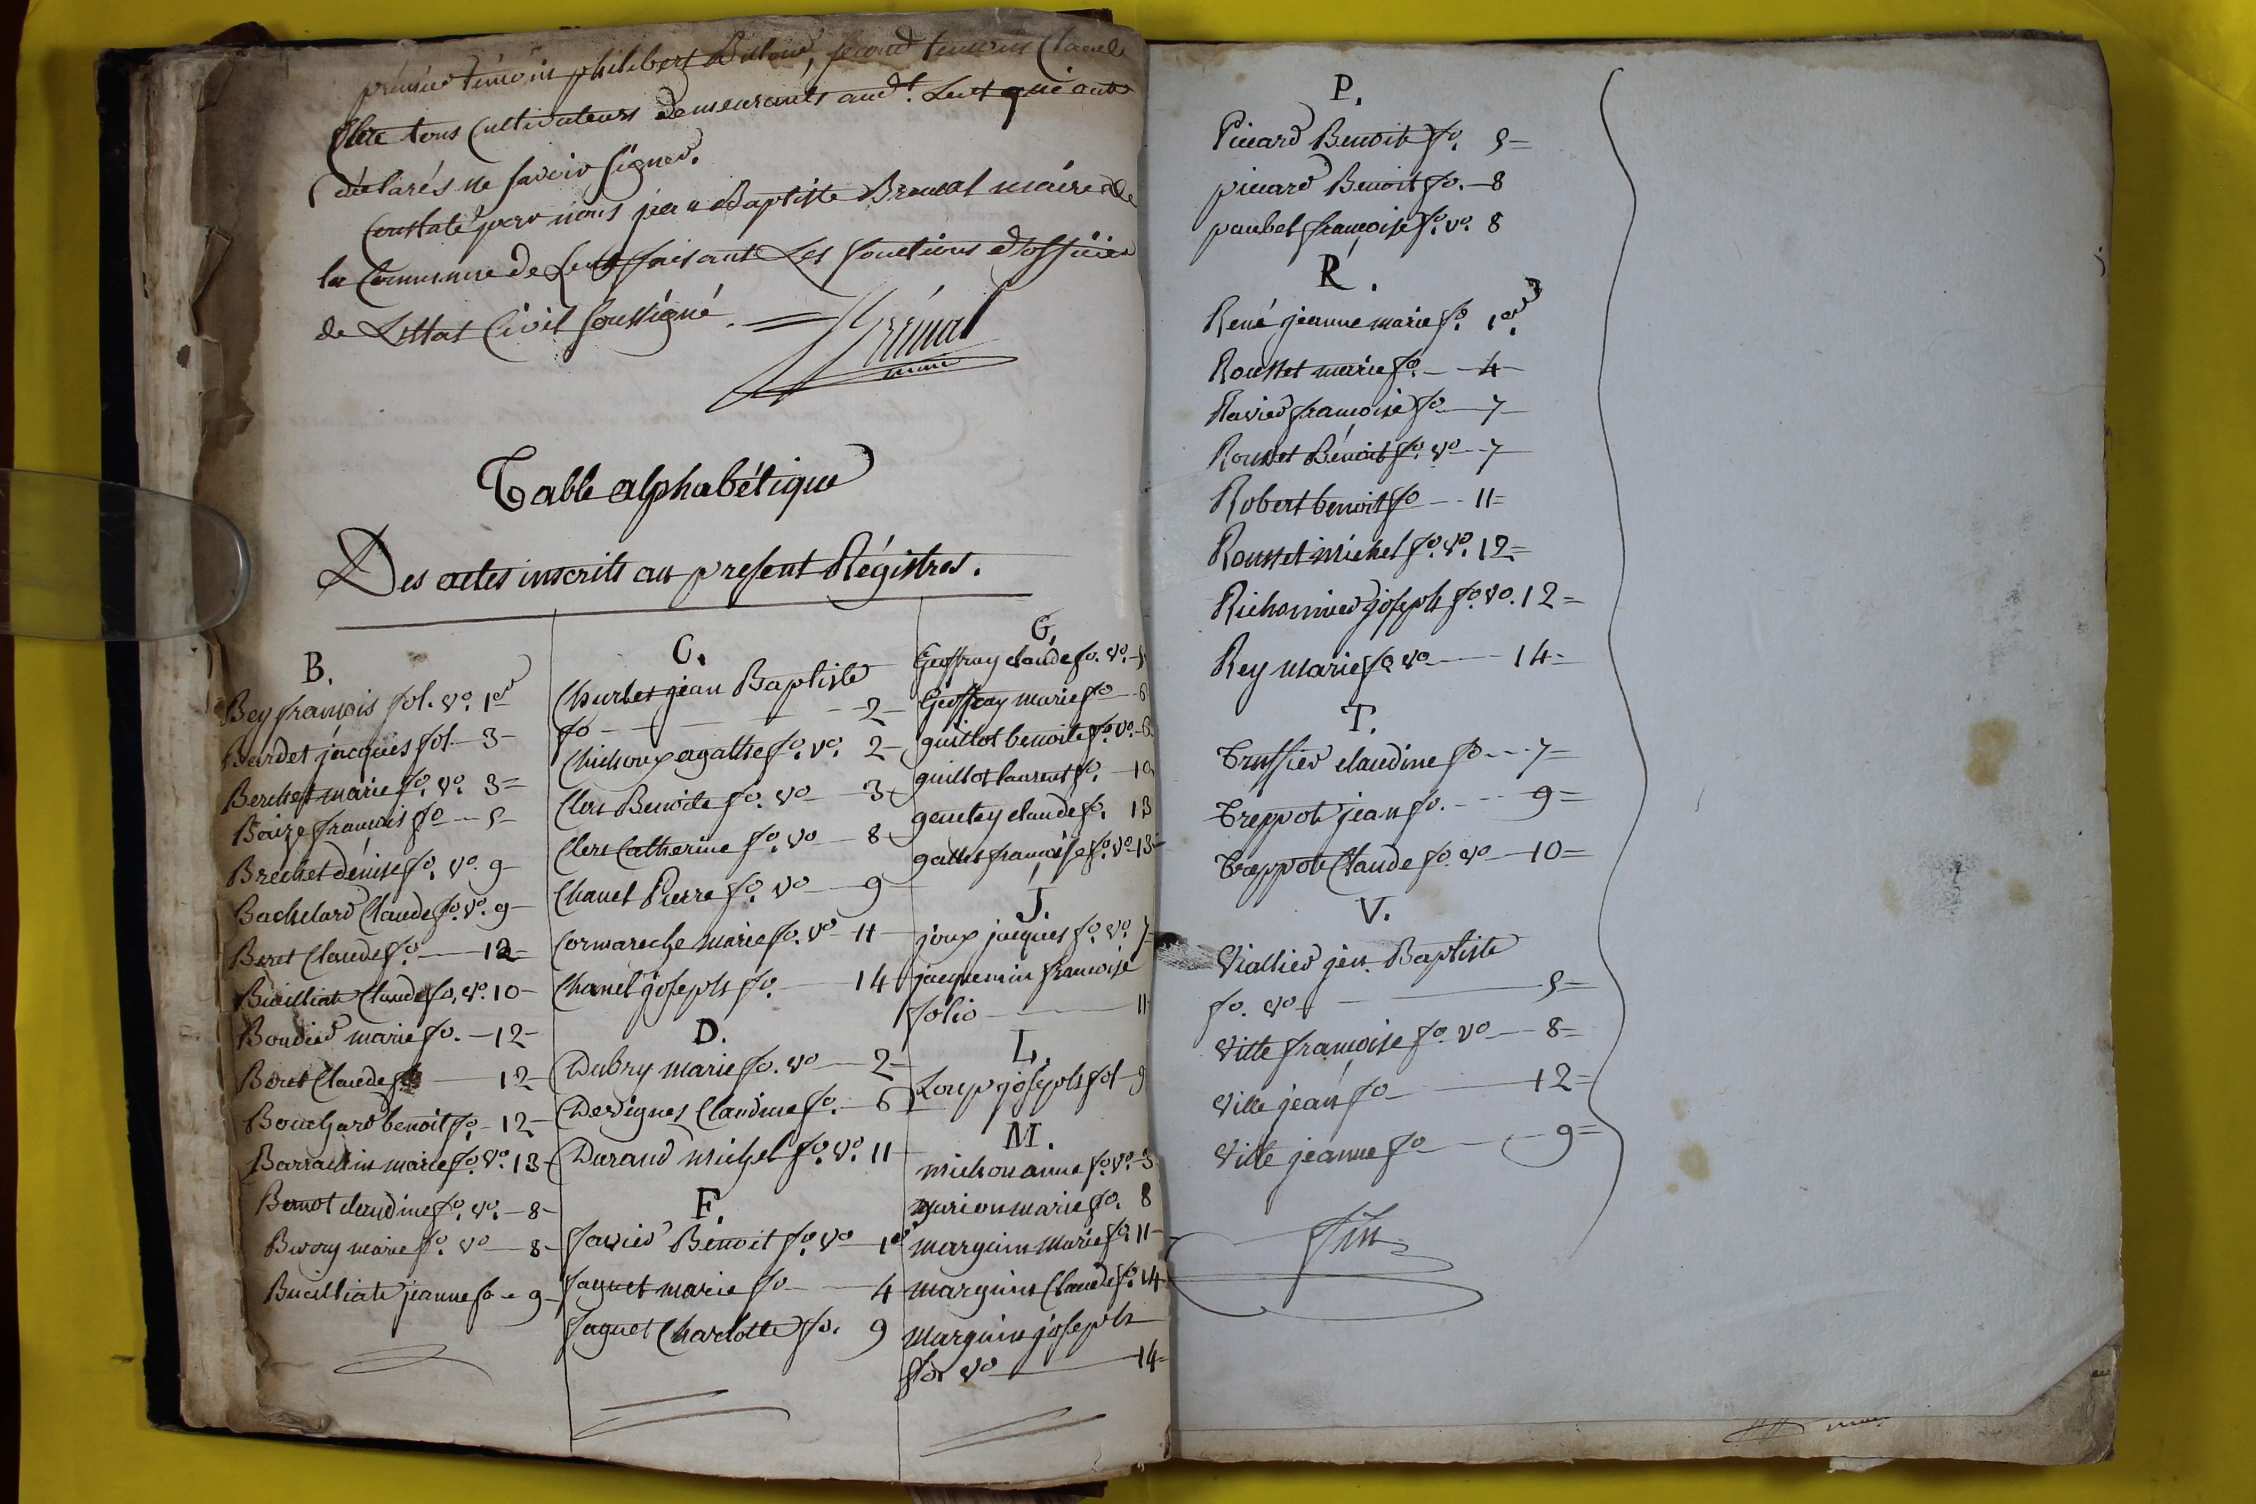 premier témoin philibert second temoins Claude
Clere tous Cultivateurs demeurants audt. Lent qui ont
déclarés ne savoir signer.
Constaté par nous jean Baptiste Brenal maire de
la Commune de Lent faisant Les fonctions d'officier
de L'Ettat Civil soussigné
Brénal
maire
Table alphabétique
Des actes inscrits au present Régistres.
B.
Bey françois fol. vo. 1er
Bardet jacques fol. 3
Berchet marie fo. vo. 3=
Boize francois fo 5
Brechet denise fo. vo. 9
Bachelard Claude fo. vo. 9
Beret Claude fo. 12=
Builliat Claude fo. vo. 10
Boudier marie fo. 12
Beret Claude fo 12
Bouchard benoit fo. 12
Barraudin marie fo. vo. 13
Benot claudine fo. vo. 8
Buvory marie fo. vo 8
Builliat jeanne fo 9
C.
Charlet jean Baptiste
fo 2
Chichoux agathe fo. vo. 2
Clerc Benoite fo. vo 3
Clerc Catherine fo. vo 8
Chanel Pierre fo. vo 9
Cormareche marie fo. vo 11
Chanel joseph fo. 14
D.
Dubry marie fo. vo 2
Desvignes Claudine fo. 6
Durand michel fo. vo. 11
F.
favier Benoit fo. vo 1er
faguet marie fo 4
faguet Charlotte fo. 9
G.
Geoffray claude fo. vo.
Geoffray marie fo 6
guillot benoite fo. vo. 6
guillot laurent fo. 10
gautey claude fo. 13
gallet francoise fo. vo 13
J.
joux jacques fo. vo. 7
jacquemin francoise
folio 11
L.
Loup joseph fol 9
M.
michon anne fo. vo. 3
marion marie fo. 8
marguin marie fo. 11
marguin Claude fo. 14
marguin joseph
fo. vo 14
P.
Picard Benoite fo. 5=
picard Benoit fo. 8
paubel françoise fo. vo. 8
R.
René jeanne marie fo. 1er.
Rousset marie fo. 4
Ravier françoise fo 7
Rousset Bénoit fo. vo 7
Robert benoit fo 11=
Rousset michel fo. vo. 12=
Richonnier joseph fo. vo. 12=
Rey marie fo. vo 14=
T.
Truffier claudine fo 7=
Treppot jean fo. 9=
Treppot Claude fo. vo 10=
V.
Viallier jean Baptiste
fo. vo 5=
Ville françoise fo. vo 8=
Ville jean fo 12=
Ville jeanne fo 9=
fin